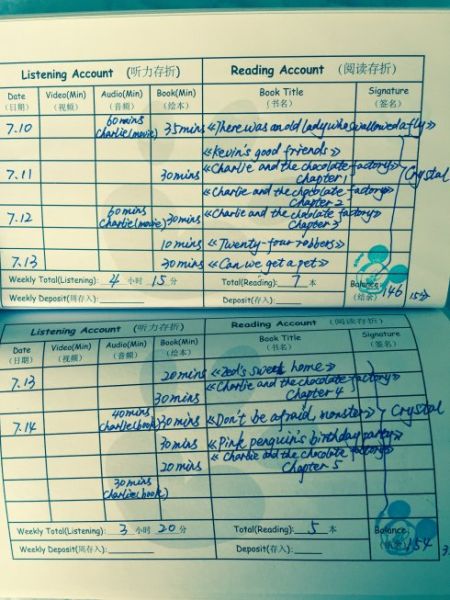 Listening Account (听力存折) Reading Account (阅读存折)
Date Video(Min) Audio(Min) Book(Min) Book Title Signature
(日期) (视频) (音频) (绘本) (书名) (签名)
7.10 60mins charlie(movie) 35mins 《There was an old lady who swallowed a fly》
《Kevin's good friends》
7.11 30mins 《Charlie and the chocolate factory》 Chapter 1 Crystal
《Charlie and the chocolate factory》 Chapter 2
7.12 60mins Charlie(movie) 30mins 《Charlie and the choclate factory》 Chapter 3
10mins 《Twenty-four robbers》
7.13 30mins 《Can we get a pet》
Weekly Total(Listening): 4 小时 15 分 Total(Reading): 7 本 Balance:
Weekly Deposit(周存入): Deposit(存入): (结余) 146
Listening Account (听力存折) Reading Account (阅读存折)
Date Video(Min) Audio(Min) Book(Min) Book Title Signature
(日期) (视频) (音频) (绘本) (书名) (签名)
7.13 20mins 《Zed's sweet home》
30mins 《Charlie and the chocolate factory》 Chapter 4
7.14 40mins charlie(book) 30mins 《Don't be afraid, monster》 Crystal
30mins 《Pink penguin's birthday party》
20mins 《Charlie and the chocolate factory》 Chapter 5
30mins Charlie(book)
Weekly Total(Listening): 3 小时 20 分 Total(Reading): 5 本 Balance:
Weekly Deposit(周存入): Deposit(存入): (结余) 154